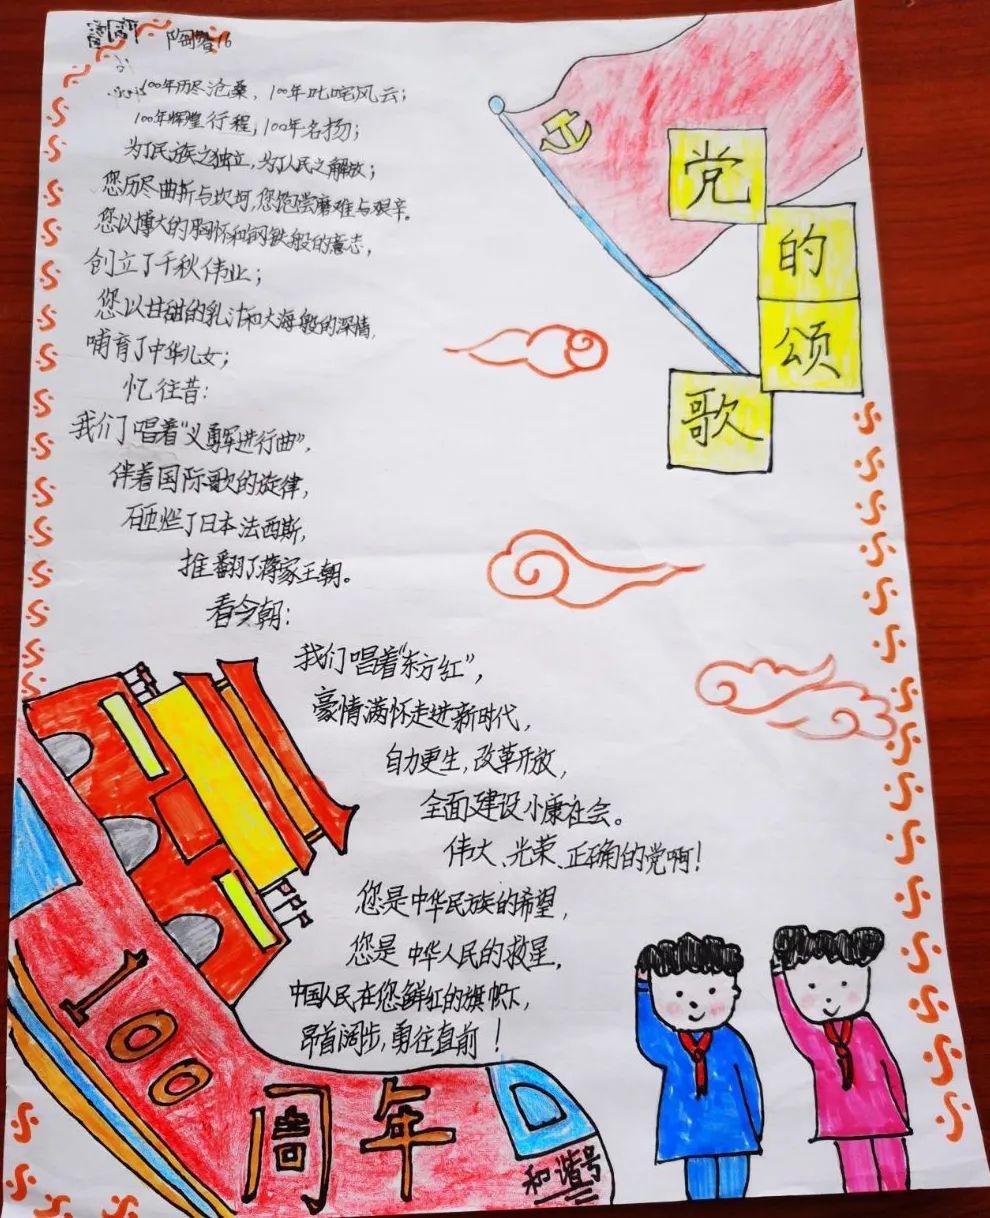 100年历尽沧桑，100年叱咤风云；
100年辉煌行程，100年名扬；
为了民族之独立，为了人民之解放；
您历尽曲折与坎坷，您饱尝磨难与艰辛。
您以博大的胸怀和钢铁般的意志，
创立了千秋伟业；
您以甘甜的乳汁和大海般的深情，
哺育了中华儿女；
忆往昔：
我们唱着“义勇军进行曲”，
伴着国际歌的旋律，
砸烂了日本法西斯，
推翻了蒋家王朝。
看今朝：
我们唱着“东方红”，
豪情满怀走进新时代，
自力更生，改革开放，
全面建设小康社会。
伟大、光荣、正确的党啊！
您是中华民族的希望，
您是中华人民的救星，
中国人民在您鲜红的旗帜下，
昂首阔步，勇往直前！
党
的
颂
歌
100
周年
和谐号